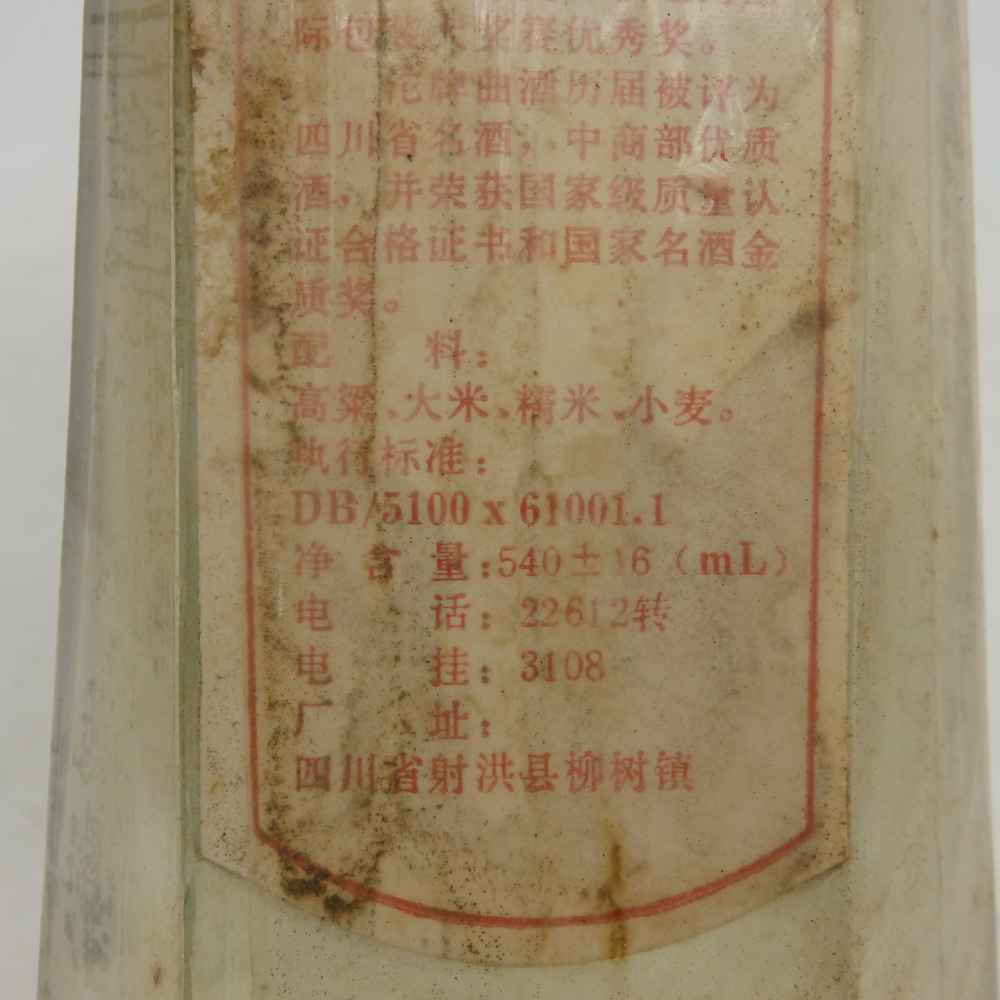 际包装大奖赛优秀奖。
沱牌曲酒历届被评为
四川省名酒，中商部优质
酒，并荣获国家级质量认
证合格证书和国家名酒金
质奖。
配 料：
高粱、大米、糯米、小麦。
执行标准：
DB/5100 x 61001.1
净含量:540±16（mL）
电 话：22612转
电 挂：3108
厂 址：
四川省射洪县柳树镇